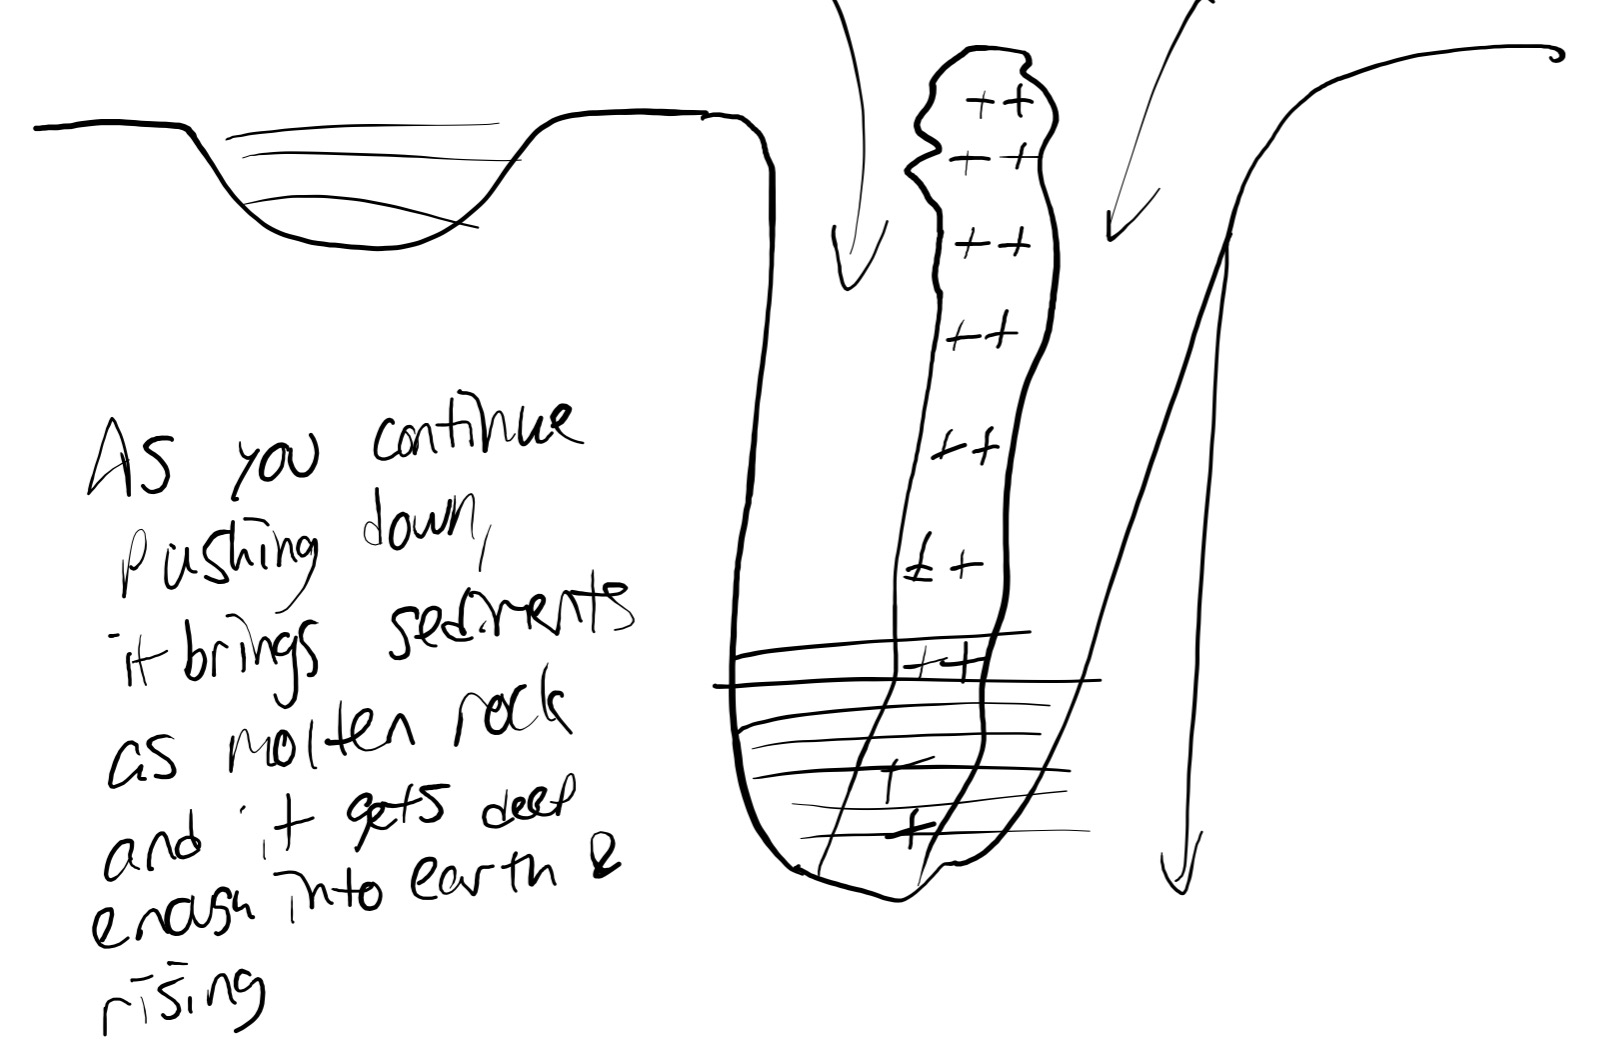 As you continue
pushing down,
it brings sediments
as molten rock
and it gets deep
enough into earth &
rising
++
++
++
++
++
±+
++
+
+